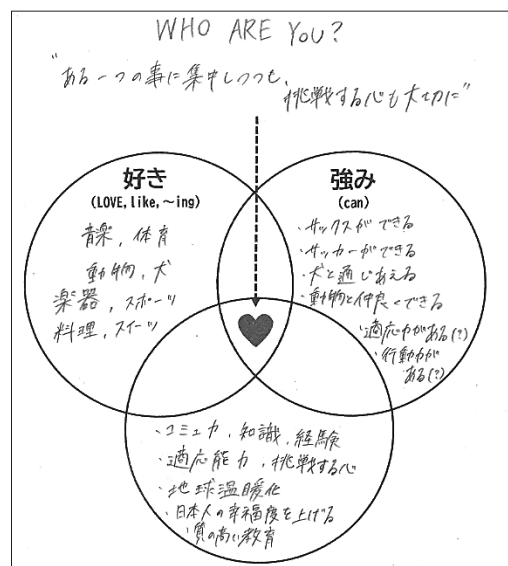 WHO ARE YOU?
"ある一つの事に集中しつつも、
挑戦する心も大切に"
好き
(LOVE, like, ～ing)
音楽, 体育
動物, 犬
楽器, スポーツ
料理, スイーツ
強み
(can)
・サックスができる
・サッカーができる
・犬と通じあえる
・動物と仲良くできる
・適応力がある(?)
・行動力が
ある(?)
・コミュ力, 知識, 経験
・適応能力, 挑戦する心
・地球温暖化
・日本人の幸福度を上げる
・質の高い教育